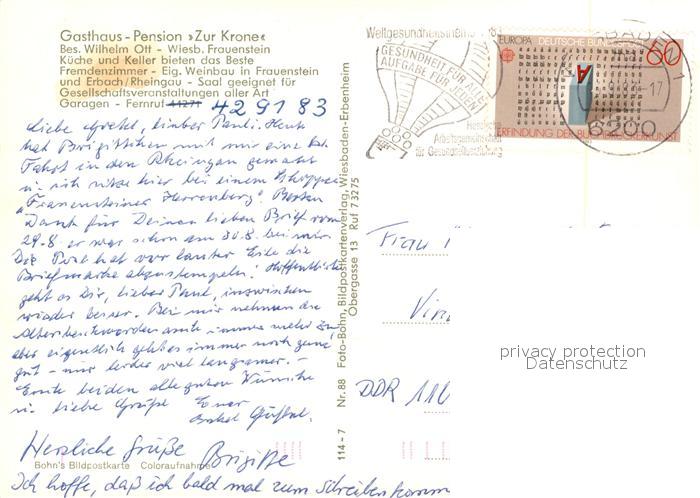 Gasthaus - Pension »Zur Krone«
Bes. Wilhelm Ott - Wiesb. Frauenstein
Küche und Keller bieten das Beste
Fremdenzimmer - Eig. Weinbau in Frauenstein
und Erbach/Rheingau - Saal geeignet für
Gesellschaftsveranstaltungen aller Art
Garagen - Fernruf 41271 429183
Liebe Gretel, lieber Paul! Heute
hat Brigittchen mit mir eine
Fahrt in den Rheingau gemacht
u. ich sitze hier bei einem Schoppen
"Frauensteiner Herrenberg". Besten
Dank für Deinen lieben Brief vom
29.8. er war schon am 30.8. bei mir.
Die Post hat vor lauter Eile die
Briefmarke abzustempeln! Hoffentlich
geht es Dir, lieber Paul, inzwischen
wieder besser. Bei mir nehmen die
Altersbeschwerden auch immer mehr zu,
aber eigentlich geht es immer noch ganz
gut - nur leider viel langsamer. -
Euch beiden alle guten Wünsche
u. liebe Grüße Euer
Herzliche Grüße Brigitte
Ich hoffe, daß ich bald mal zum Schreiben komm
Bohn's Bildpostkarte Coloraufnahme
114 - 7 Nr. 88 Foto-Bohn, Bildpostkartenverlag, Wiesbaden-Erbenheim
Obergasse 13 Ruf 73275
GESUNDHEIT FÜR ALLE
AUFGABE FÜR JEDEN
für Gesundheitserziehung
EUROPA DEUTSCHE BUNDESPOST
60
A
ERFINDUNG DER BUCHDRUCKERKUNST
6200
Frau
DDR 110
privacy protection
Datenschutz